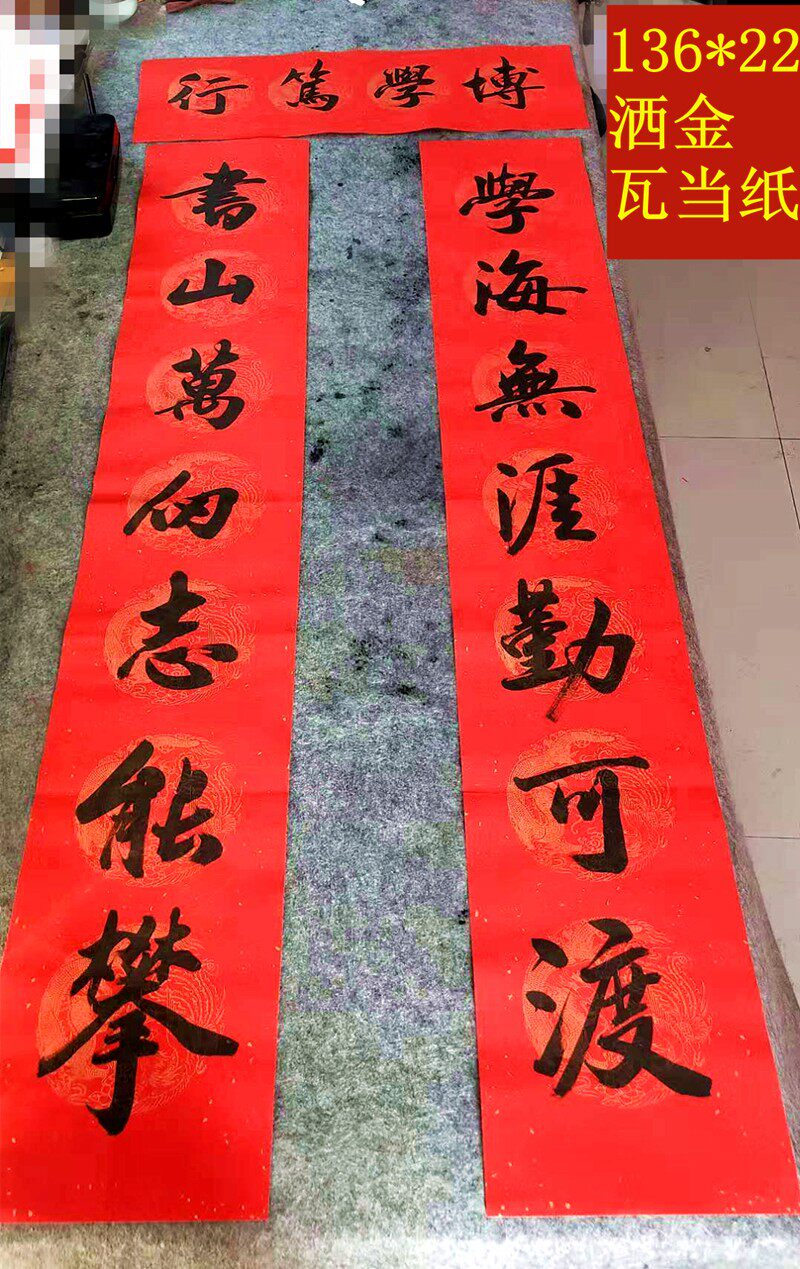 136*22
洒金
瓦当纸
博學篤行
學海無涯勤可渡
書山萬仞志能攀